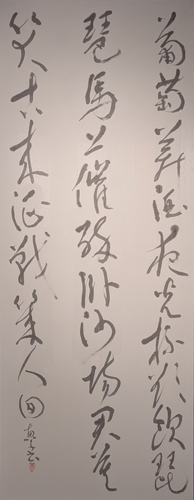 葡萄美酒夜光杯欲飲琵
琵馬上催醉臥沙場君莫
笑古来征戰幾人回